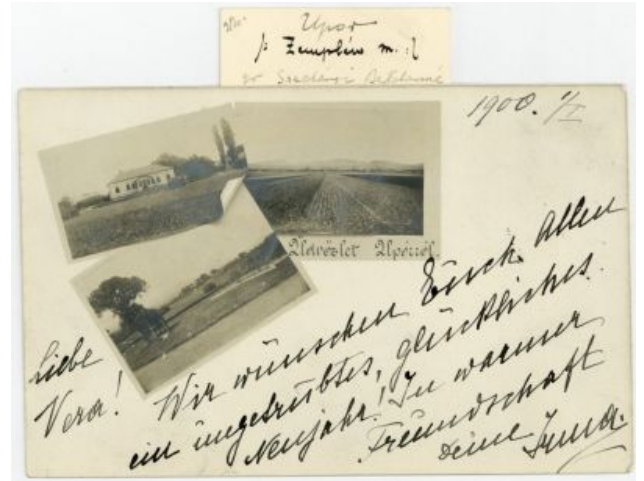 Upor
Zemplén m.
gr
1900. 1/I
Üdvözlet Upórról.
Liebe
Vera!
Wir wünschen Euch Allen
ein ungetrübtes, glückliches
Neujahr! In warmer
Freundschaft
Deine Irma.